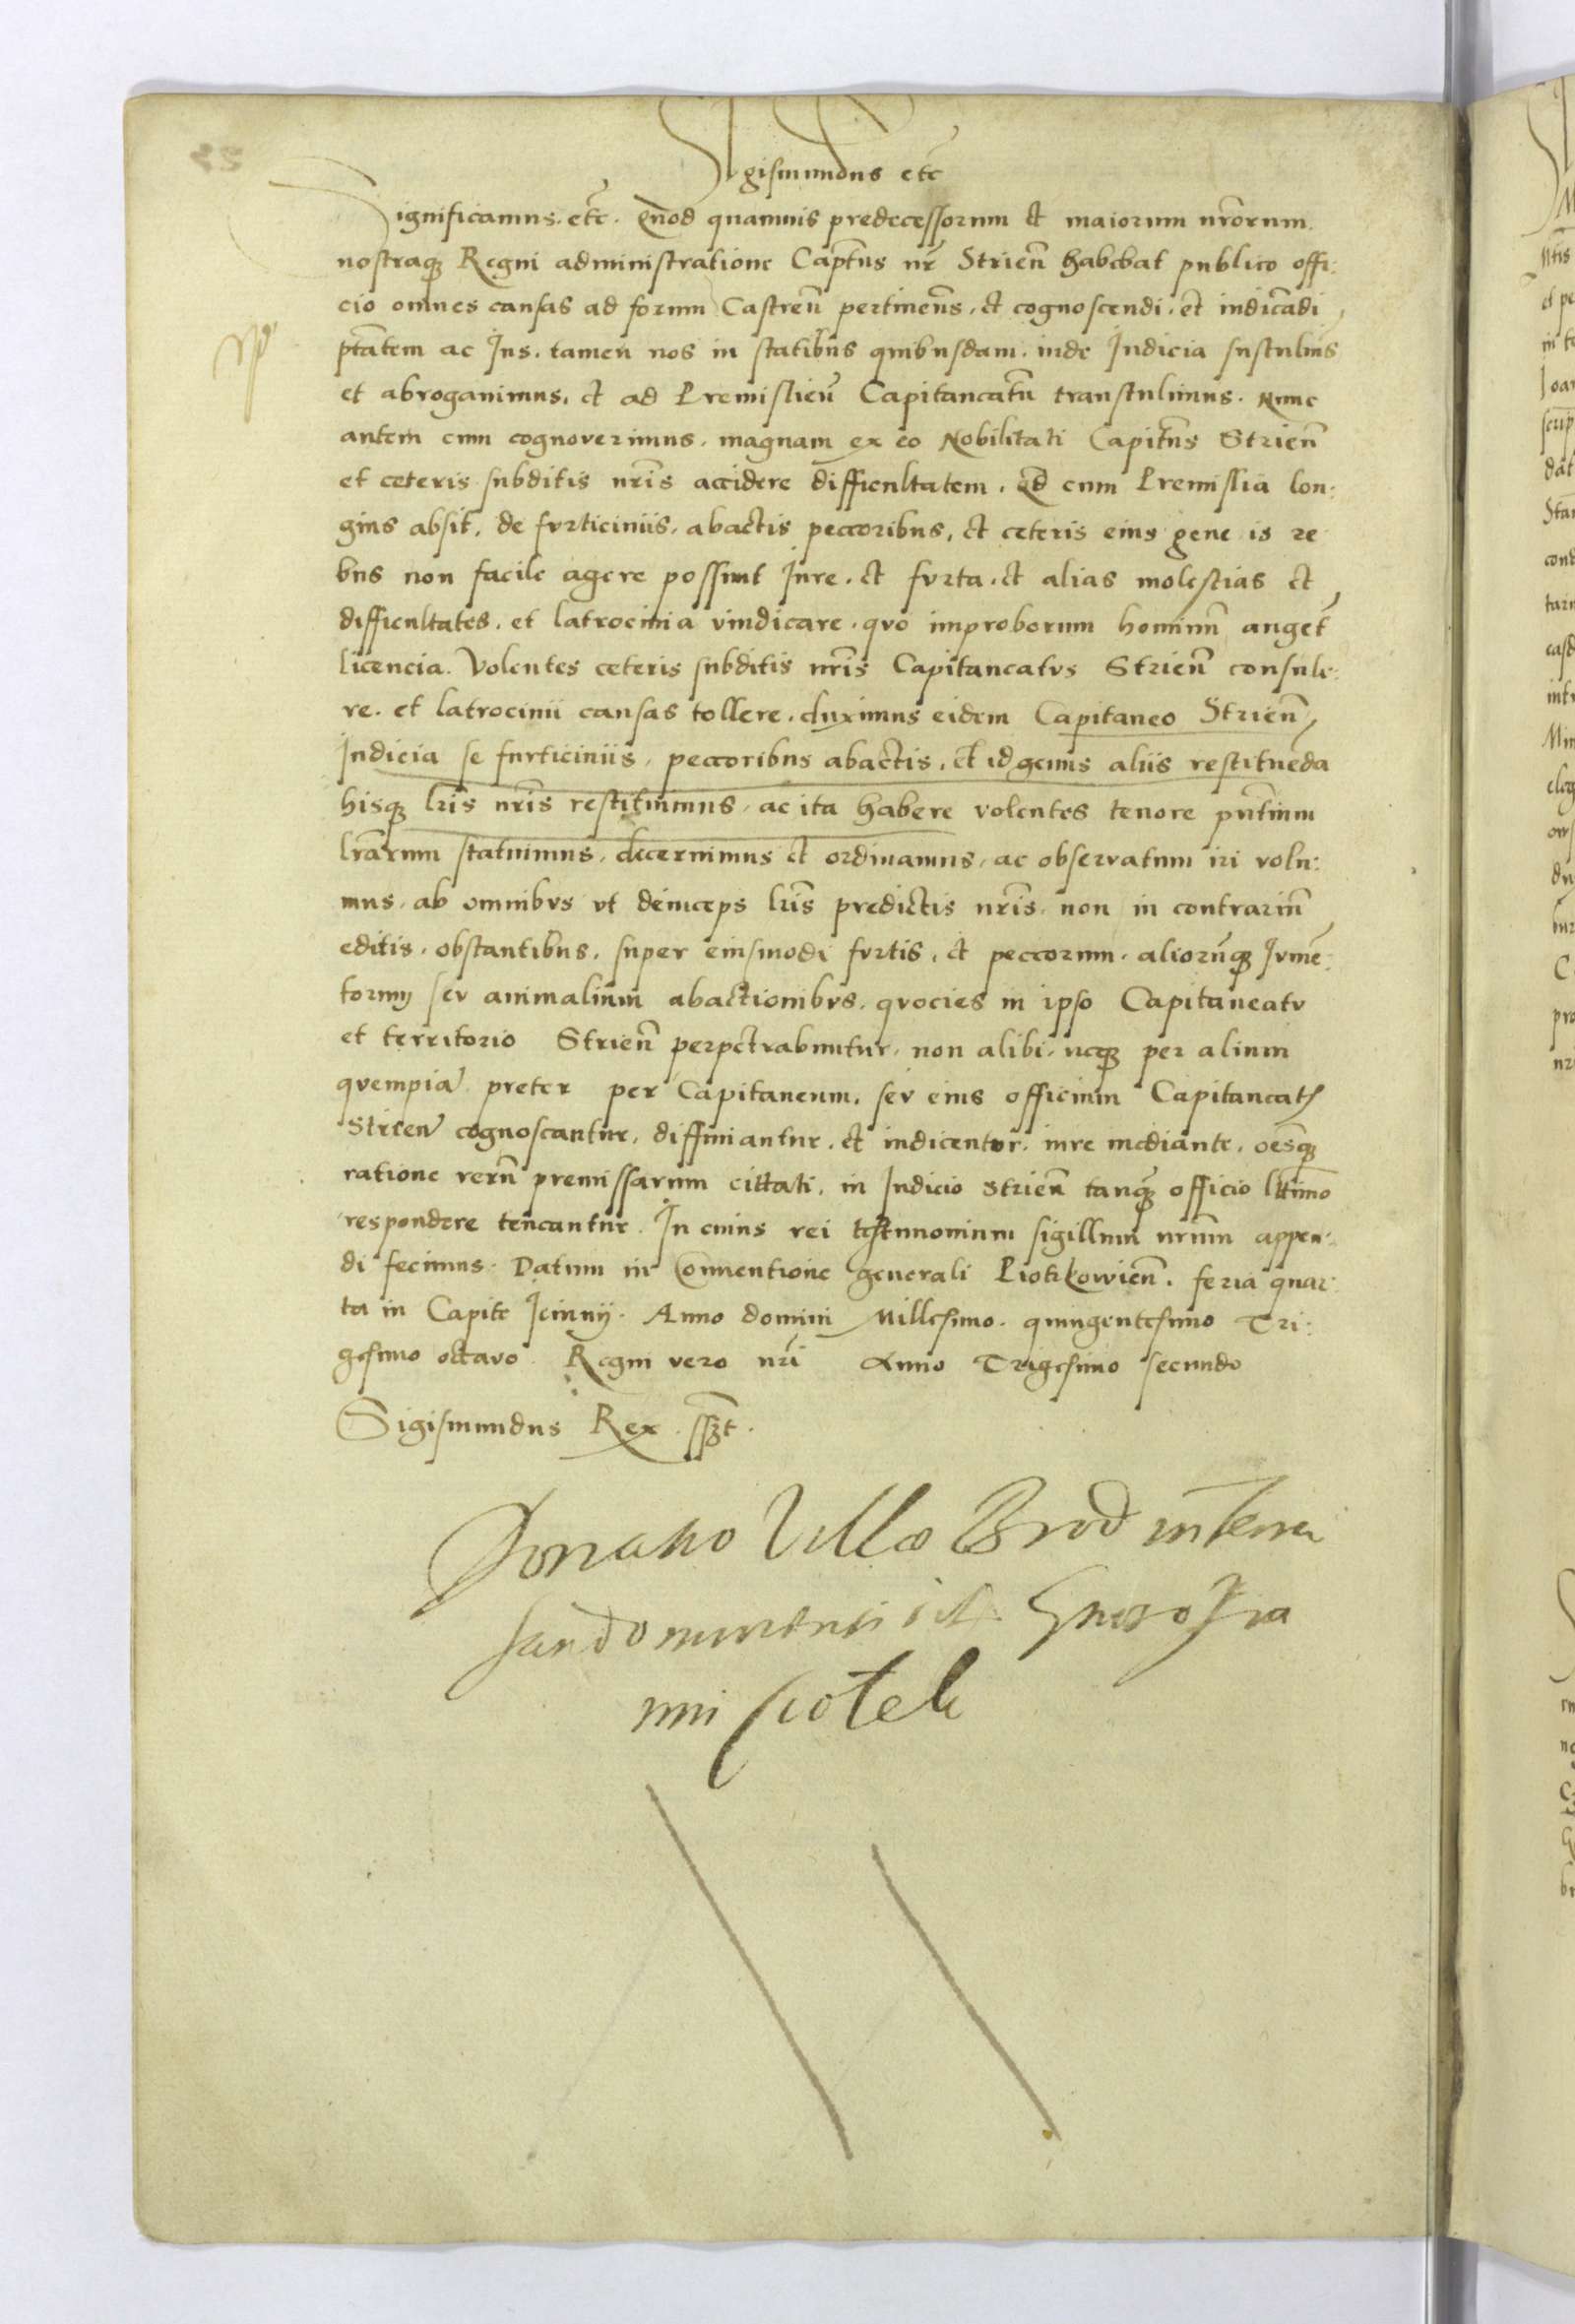 Sigismundus etc
Significamus. etc. Quod quamuis predecessorum et maiorum nrorum.
nostraq Regni administratione Captus nr Strien habebat publico offi:
cio omnes causas ad forum Castren pertinens, et cognoscendi, et iudicadi
ptatem ac Jus. tamen nos in statibus quibusdam. inde Judicia sustulims
et abrogauimus, et ad Premislien Capitaneatu transtulimus. Nunc
autem cum cognoverimus, magnam ex eo Nobilitati Capitus Strien
et ceteris subditis nris accidere difficultatem. Qd cum Premislia lon:
gius absit, de furticiniis, abactis peccoribus, et ceteris eius gene is re
bus non facile agere possunt Jure, et furta, et alias molestias et
difficultates, et latrocinia vindicare, quo improborum hominu auget
licencia. Volentes ceteris subditis nris Capitaneatus Strien consule:
re. et latrocinii causas tollere, duximus eidem Capitaneo Strien,
Judicia se furticiniis, peccoribus abactis, et id genus aliis restitueda
hisq lris nris restituimus, ac ita habere volentes tenore pntium
lrarum statuimus, decernimus et ordinamus, ac observatum iri volu:
mus, ab omnibus ut deinceps lris predictis nris, non in contrariu
editis, obstantibus, super eiusmodi furtis, et peccorum, alioruq Jume:
torum seu animalium abactionibus, quocies in ipso Capitaneatu
et territorio Strien perpetrabuntur, non alibi, neq per alium
quempia preter per Capitaneum, seu eius officium Capitaneats
Strien cognoscantur, diffiniantur, et iudicentur, iure mediante, oesq
ratione reru premissarum cittati, in Judicio Strien tanq officio lttimo
respondere teneantur. In cuius rei testimonium sigillum nrum appen:
di fecimus. Datum in Conuentione generali Piotrkovien, feria quar:
ta in Capite Jeiunij. Anno domini Millesimo. quingentesimo Tri:
gesimo octavo. Regni vero nri Anno Trigesimo secundo
Sigismundus Rex. sszt.
Donatio Villae Brod in terra
Sandomiriensi